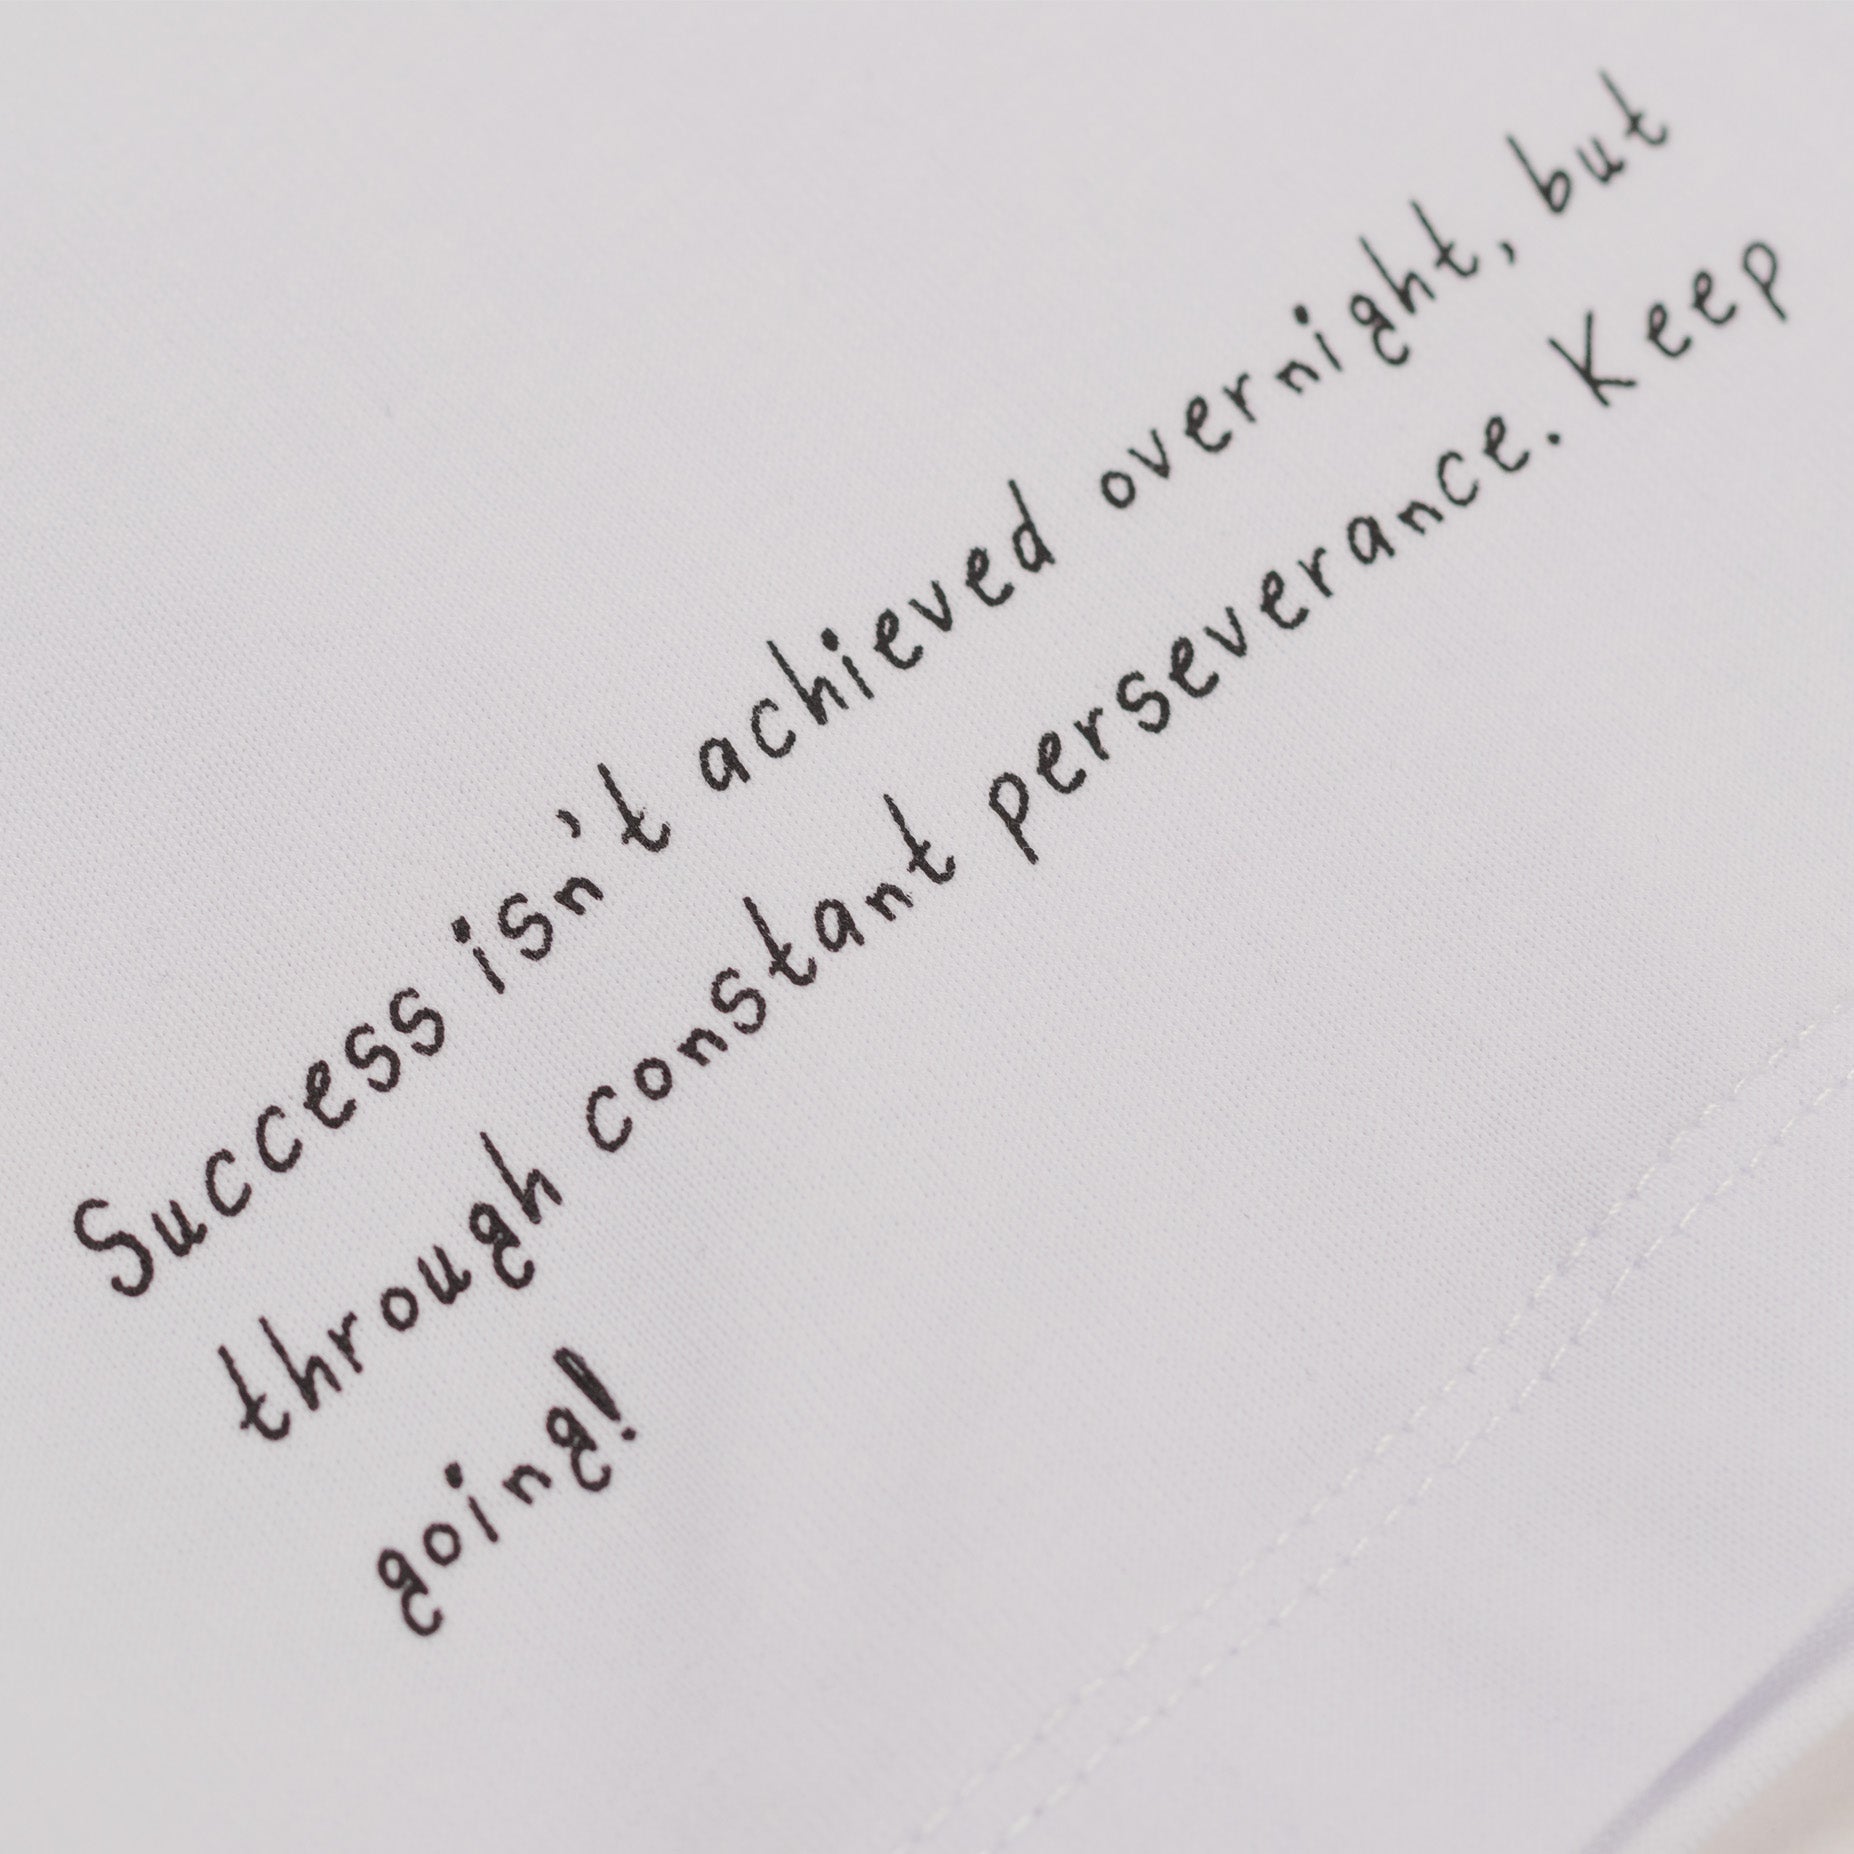 Success isn't achieved overnight, but
through constant perseverance. Keep
going!